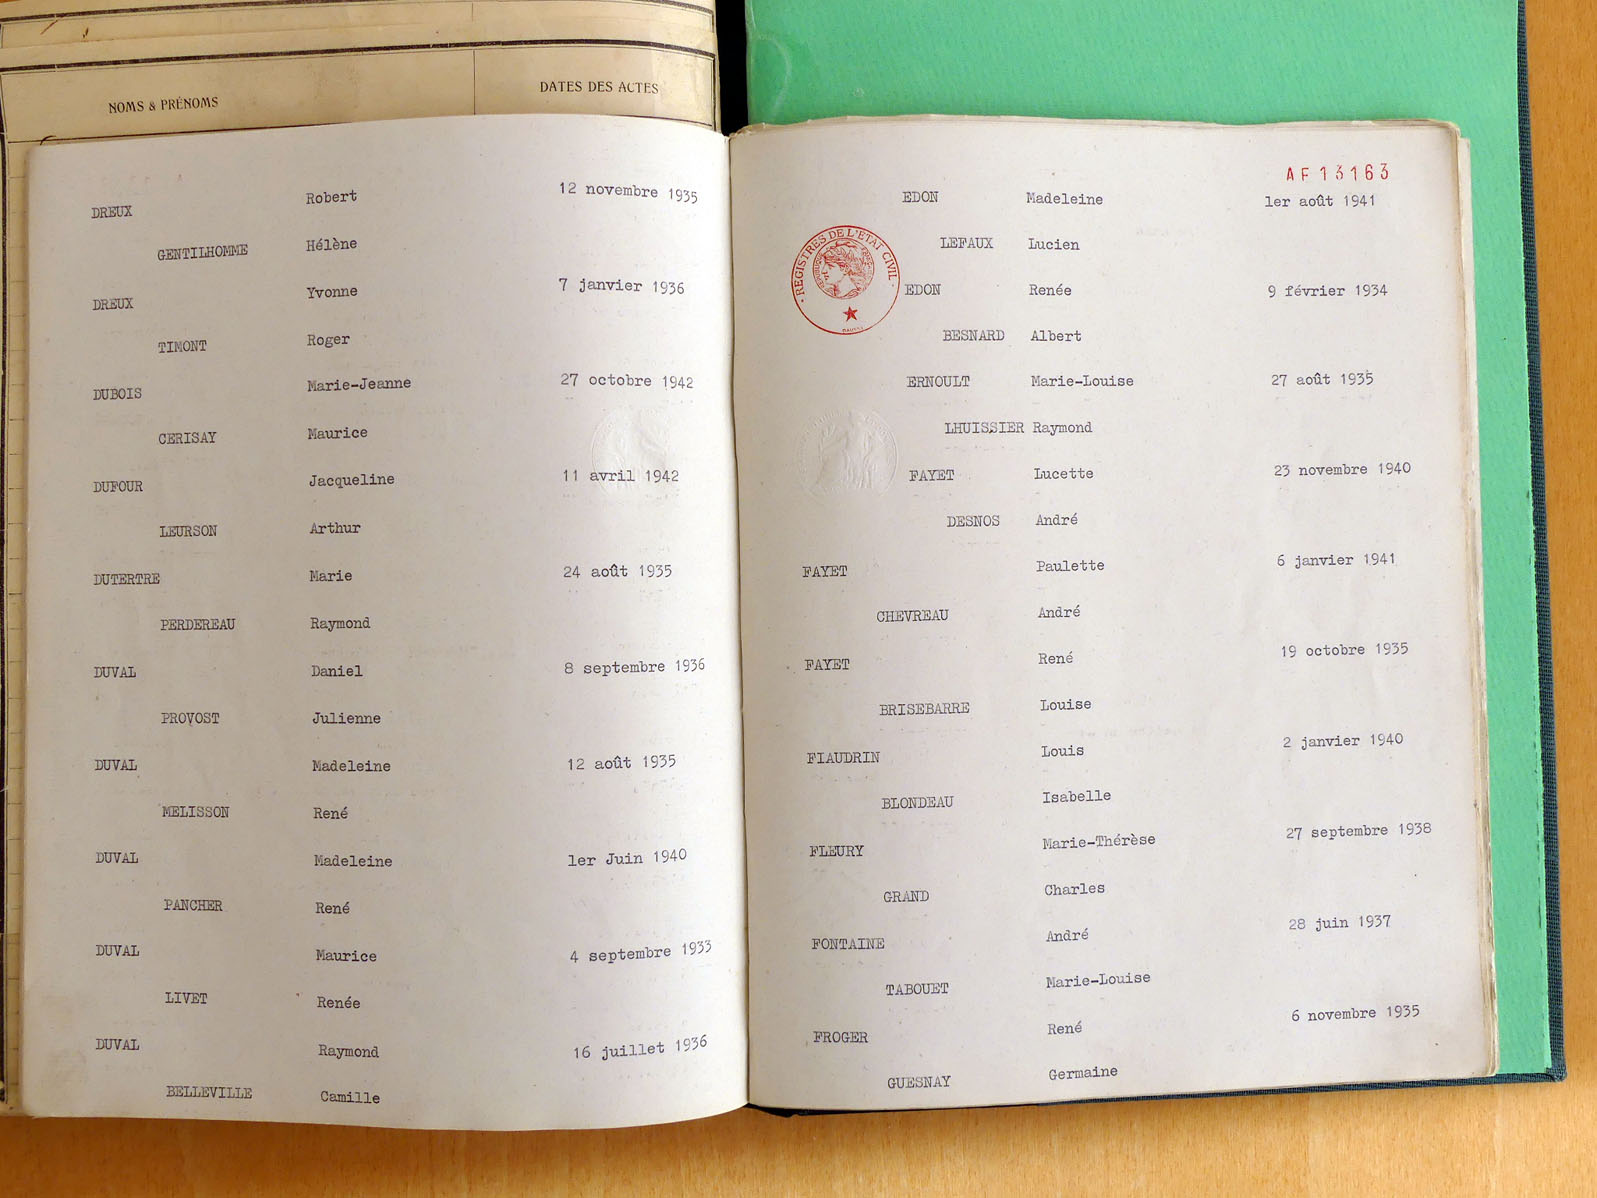 NOMS & PRÉNOMS
DATES DES ACTES
DREUX Robert 12 novembre 1935
GENTILHOMME Hélène
DREUX Yvonne 7 janvier 1936
TIMONT Roger
DUBOIS Marie-Jeanne 27 octobre 1942
CERISAY Maurice
DUFOUR Jacqueline 11 avril 1942
LEURSON Arthur
DUTERTRE Marie 24 août 1935
PERDEREAU Raymond
DUVAL Daniel 8 septembre 1936
PROVOST Julienne
DUVAL Madeleine 12 août 1935
MELISSON René
DUVAL Madeleine 1er Juin 1940
PANCHER René
DUVAL Maurice 4 septembre 1933
LIVET Renée
DUVAL Raymond 16 juillet 1936
BELLEVILLE Camille
AF13163
EDON Madeleine 1er août 1941
LEFAUX Lucien
REGISTRES DE L'ETAT CIVIL
EDON Renée 9 février 1934
BESNARD Albert
ERNOULT Marie-Louise 27 août 1935
LHUISSIER Raymond
FAYET Lucette 23 novembre 1940
DESNOS André
FAYET Paulette 6 janvier 1941
CHEVREAU André
FAYET René 19 octobre 1935
BRISEBARRE Louise
FIAUDRIN Louis 2 janvier 1940
BLONDEAU Isabelle
FLEURY Marie-Thérèse 27 septembre 1938
GRAND Charles
FONTAINE André 28 juin 1937
TABOUET Marie-Louise
FROGER René 6 novembre 1935
GUESNAY Germaine